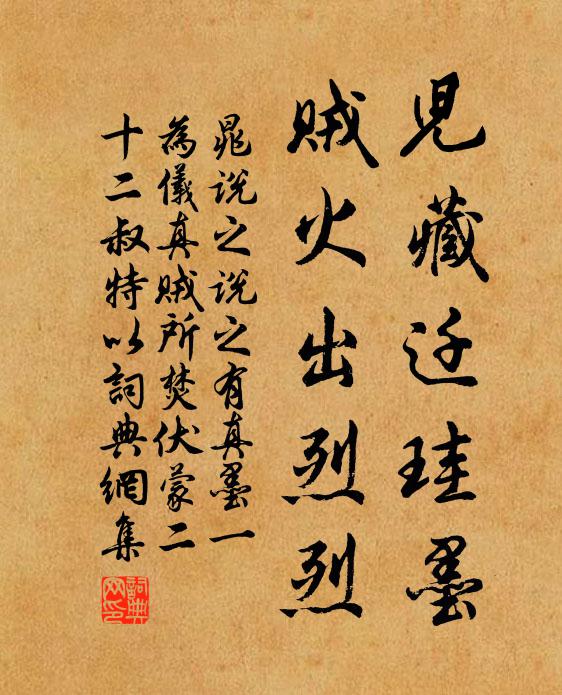 兒藏迁珪墨
賊火出烈烈
晁說之說之有真墨一
為儀真賊所焚伏蒙二
十二叔特以詞典網集
詞典網印